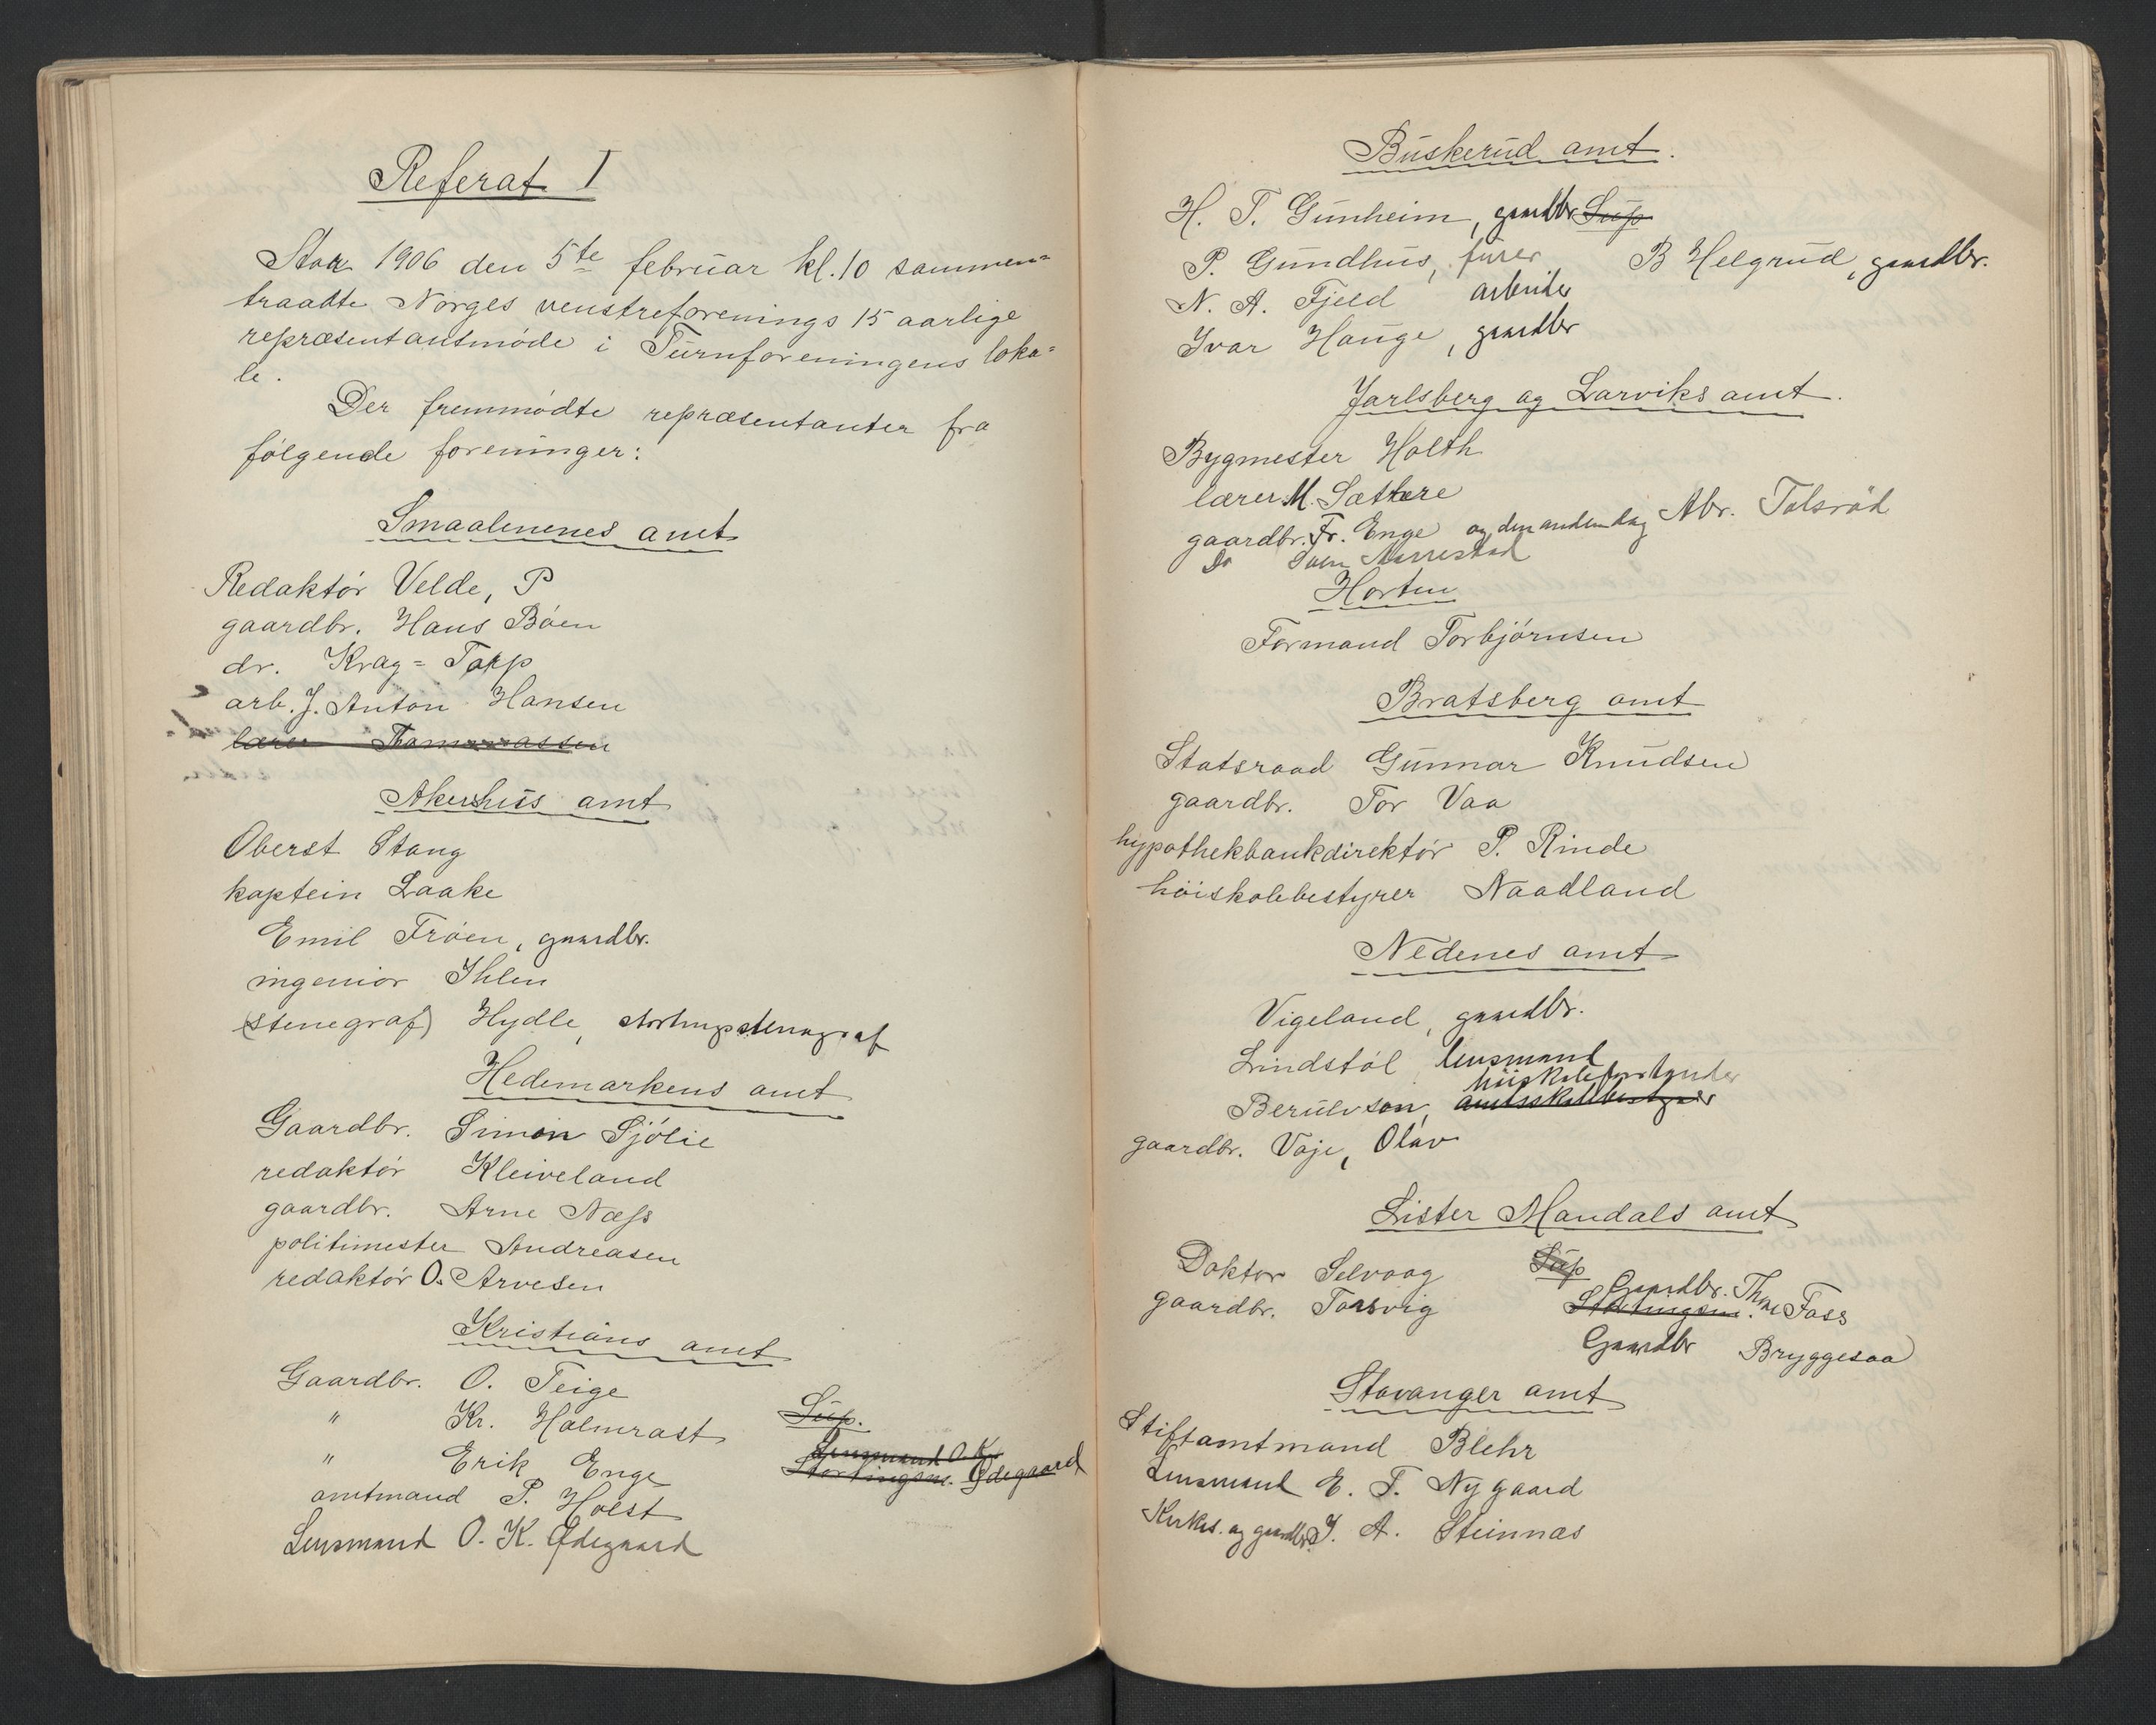 Referat I
Aar 1906 den 5te februar kl. 10 sammen=
traadte Norges venstreforenings 15 aarlige
repræsentantsmøde i Turnforeningens loka=
le.
Der fremmødte repræsentanter fra
følgende foreninger:
Smaalenenes amt
Redaktør Velde, P
gaardbr. Hans Bøen
dr. Krag=Torp
arb. J. Anton Hansen
lærer Thommassen
Akershus amt
Oberst Stang
kaptein Laake
Emil Frøen, gaardbr.
ingeniør Ihlen
(stenegraf) Hydle, stortingsstenograf
Hedemarkens amt
Gaardbr. Simon Sjølie
redaktør Kleiveland
gaardbr. Arne Næss
politimester Andreasen
redaktør O. Arvesen
Kristians amt
Gaardbr. O. Teige
" Kr. Holmrast Sup.
" Erik Enge Lensmand O. K.
Stortingsm. Ødegaard
amtmand P. Holst
Lensmand O. K. Ødegaard
Buskerud amt.
H. T. Gunheim, gaardbr Sup
P. Gundhus, furer B Helgrud, gaardbr.
N. A. Fjeld arbeider
Ivar Hauge, gaardbr
Jarlsberg og Larviks amt.
Bygmester Holth
lærer M. Sættere
gaardbr. Fr. Enge og den anden dag Abr. Tolsrød
Do Sven Aarrestad
Horten
Formand Torbjørnsen
Bratsberg amt
Statsraad Gunnar Knudsen
gaardbr. Tor Vaa
hypothekbankdirektør P. Rinde
høiskolebestyrer Naadland
Nedenes amt
Vigeland, gaardbr.
Lindstøl lensmand
høiskoleforstander
Berulvson, amtsskolebestyrer
gaardbr. Vaje, Olav
Lister Mandals amt
Doktor Selvaag Sup
Gaardbr. Thore Foss
gaardbr. Tarsvig Stortingsm.
Gaardbr Bryggesaa
Stavanger amt
Stiftamtmand Blehr
Lensmand E. T. Nygaard
Kirkes. og gaardbr. J. A. Steinnas